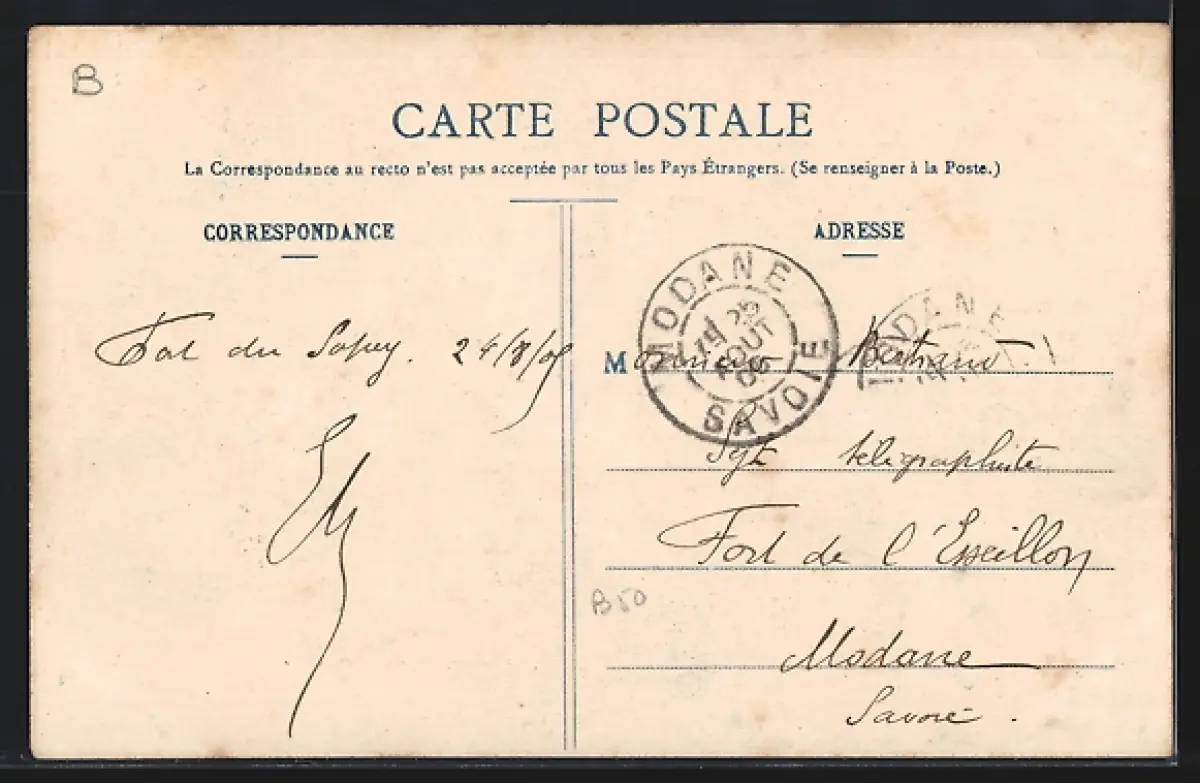 B
CARTE POSTALE
La Correspondance au recto n'est pas acceptée par tous les Pays Étrangers. (Se renseigner à la Poste.)
CORRESPONDANCE
ADRESSE
MODANE
25
AOUT
05
SAVOIE
MODANE
Fort du Sapey. 24/8/05
Monsieur Bertrand
Sgt télégraphiste
Fort de l'Esseillon
B50
Modane
Savoie.